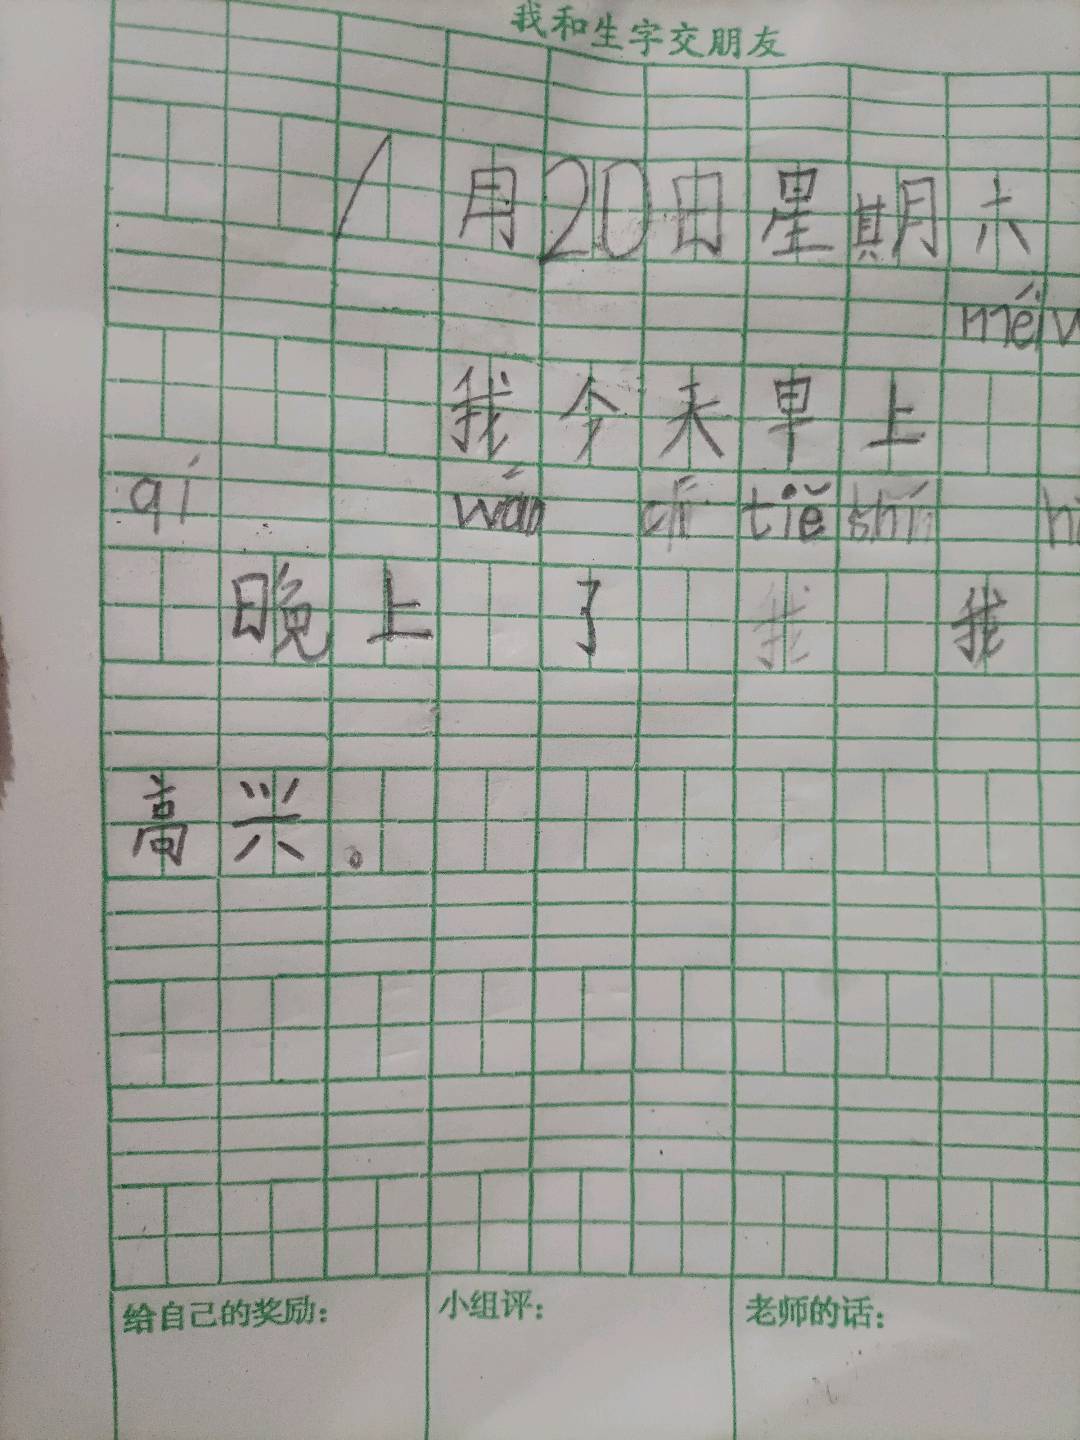 我和生字交朋友
1月20日星期六
méi
我今天早上
qí wán tiě shí
晚上 了 我 我
高兴。
给自己的奖励： 小组评： 老师的话：